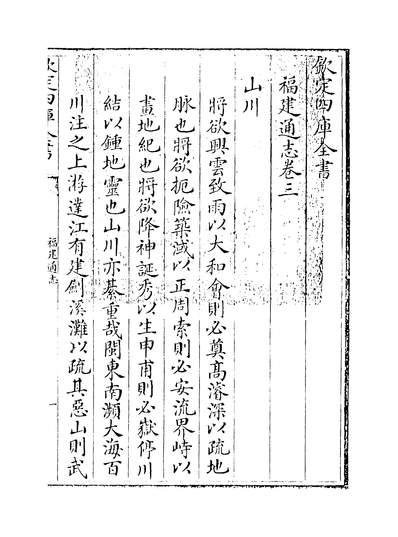 欽定四庫全書
福建通志卷三
山川
將欲興雲致雨以大和會則必奠髙濬深以疏地
脉也將欲扼險築減以正周索則必安流界峙以
畫地紀也將欲降神誕秀以生申甫則必嶽停川
結以鍾地靈也山川亦綦重哉閩東南瀕大海百
川注之上游達江有建劍溪灘以疏其惡山則武
欽定四庫全書
福建通志
一